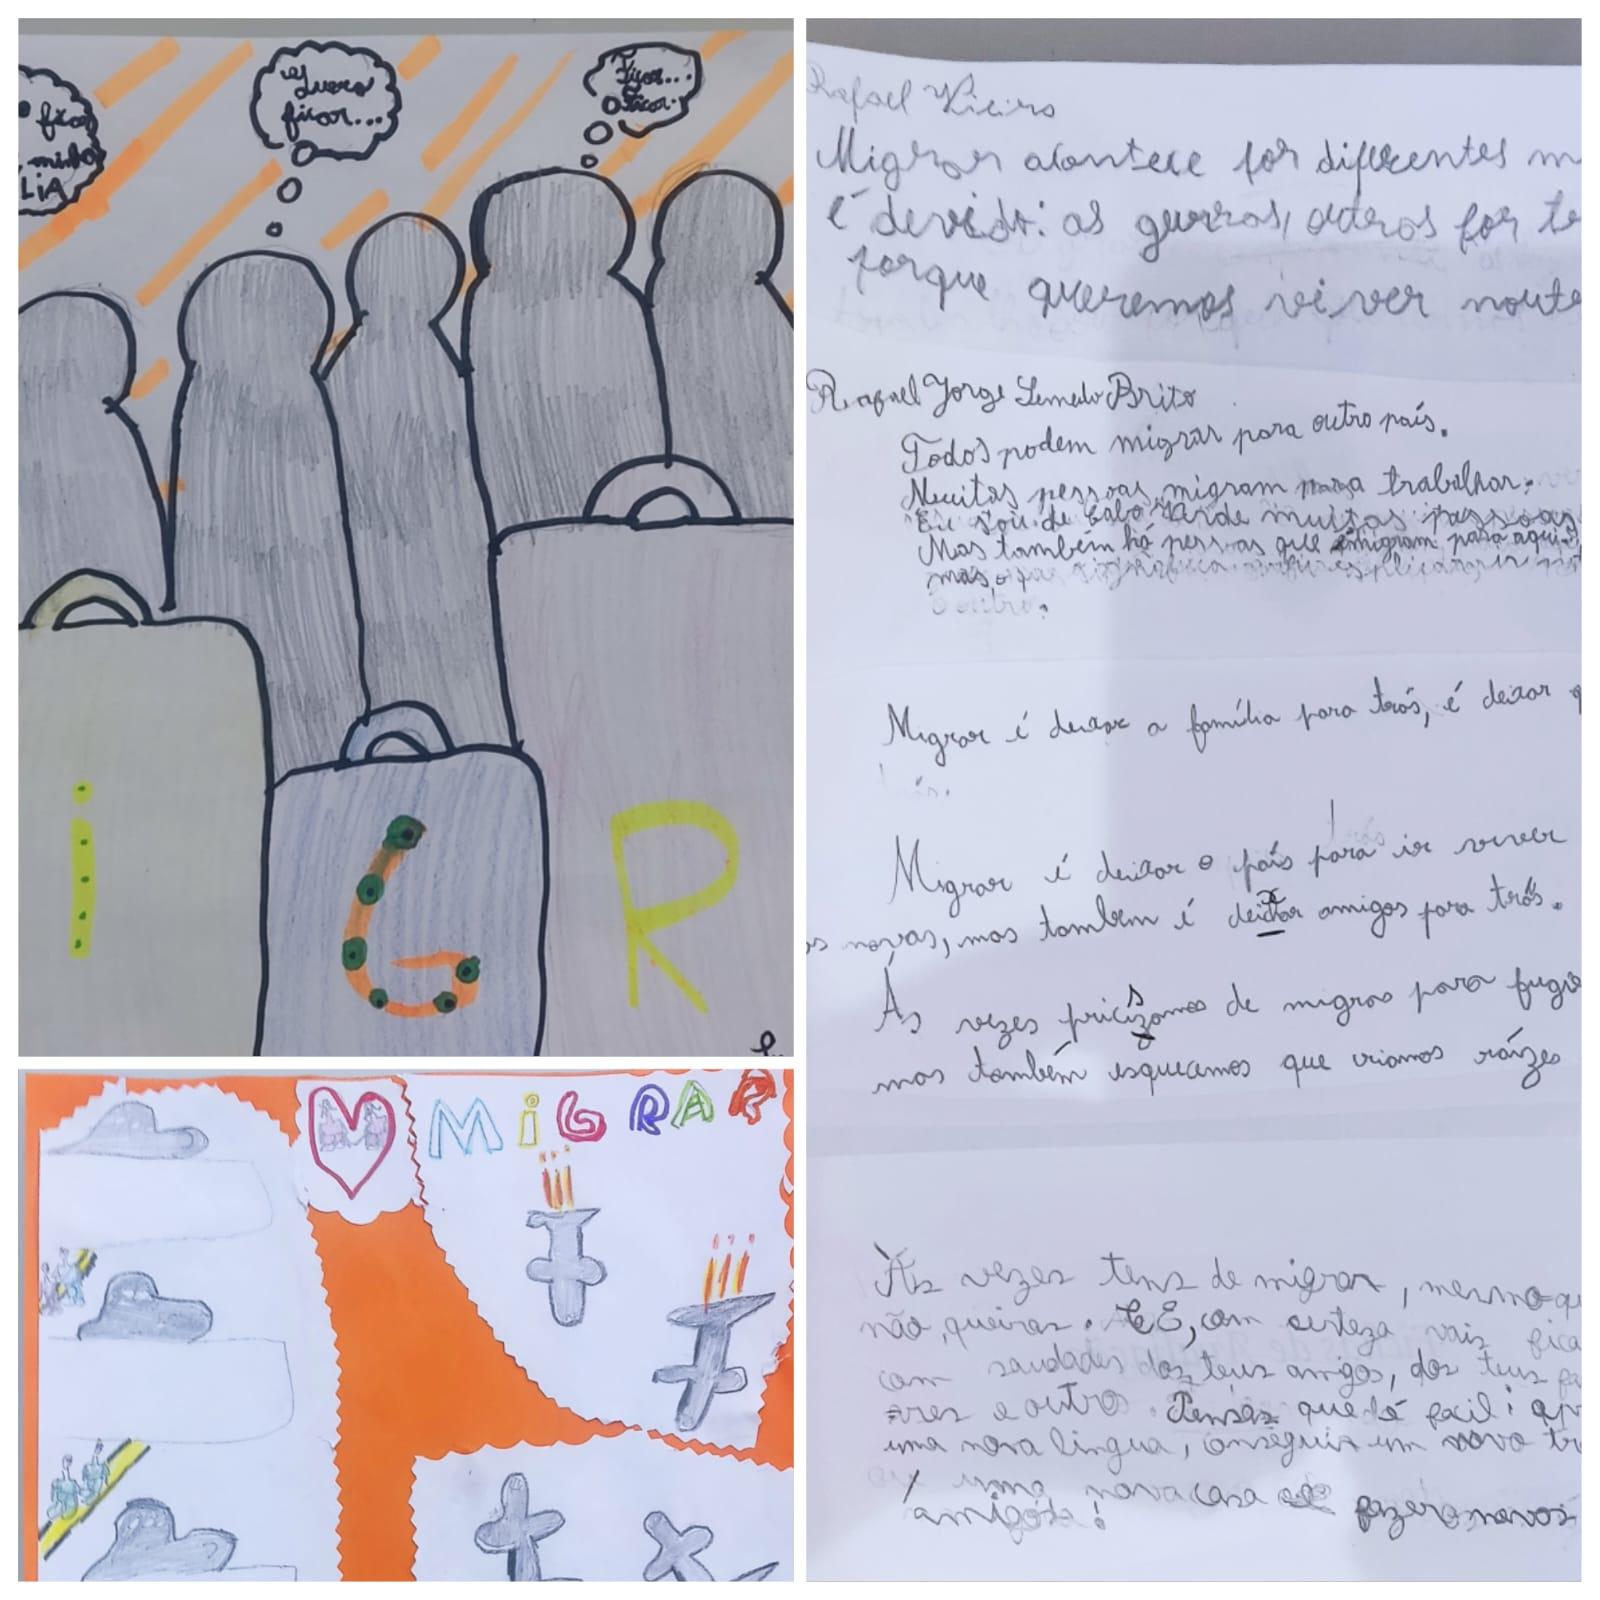 fica
minha
LiA
Quero
ficar...
Ficar...
Ficar.
i
G
R
MiGRAR
Rafael Vieira
Migrar acontece por diferentes m
é devido: as guerras, outros por te
porque queremos viver noute
Rafael Jorge Semedo Brito
Todos podem migrar para outro país.
Muitas pessoas migram para trabalhar.
Eu sou de Cabo Verde muitas pessoas
Mas também há pessoas que emigram para aqui.
mas o
o outro.
Migrar é deixar a família para trás, é deixar
trás.
Migrar é deixar o país para ir viver
as novas, mas tambem é deixar amigos para trás.
Ás vezes pricisamos de migrar para fugir
mas também esquecemos que criamos raízes
Às vezes tens de migrar, mesmo qu
não, queiras. E, com serteza vais fica
com saudades dos teus amigos, dos teus fa
res e outro. Pensas que é facil: apr
uma nova lingua, conseguir um novo tr
uma nova casa e fazer novos
amigos!